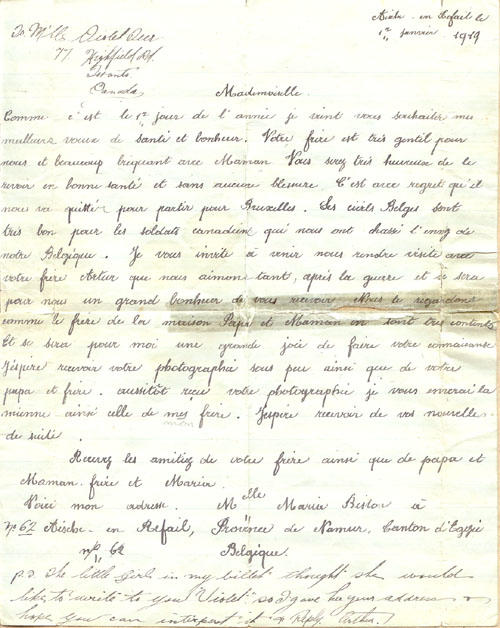 To Mlle Violet Deer
77 Highfield Rd.
Toronto
Canada
Aische-en-Refail le
1er janvier 1919
Mademoiselle.
Comme c'est le 1er jour de l'année je vient vous souhaiter mes
meilleurs voeux de santé et bonheur. Votre frère est très gentil pour
nous et beaucoup briquant avec Maman Vous serez très heureuse de le
revoir en bonne santé et sans aucune blessure. C'est avec regret qu'il
nous va quitter pour partir pour Bruxelles. Les civils Belges sont
très bon pour les soldats canadiens qui nous ont chassé l'
notre Belgique. Je vous invite à venir nous rendre visite avec
votre frère Artur que nous aimons tant, après la guerre et ce sera
pour nous un grand bonheur de vous recevoir Nous le regardons
comme le frère de la maison Papa et Maman en sont très contents
Et se sera pour moi une grande joie de faire votre connaisance
J'éspère recevoir votre photographie sous peu ainsi que de votre
papa et frère. aussitôt reçu votre photographie je vous enverai la
mienne ainsi celle de mes frère. J'éspère recevoir de vos nouvelles
mon
de suite.
Recevez les amitiez de votre frère ainsi que de papa et
Maman frère et Maria.
Voici mon adresse. Melle Maria Bistou à
No 62 Aische-en Refail, Province de Namur, Canton d'Egezée
No 62 Belgique.
P.S. The little girls in my billet thought she would
like to write to you "Violet" so I gave her your address &
hope you can interpret it & Reply Arthur.